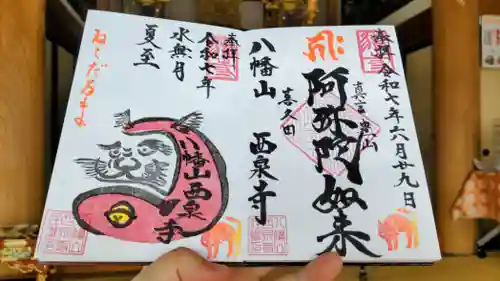 奉拝
令和七年六月廿九日
真言豊山
阿弥陀如来
喜久田
八幡山
西泉寺
奉拝
令和七年
水無月
夏至
ねこだるま
八幡山西泉寺